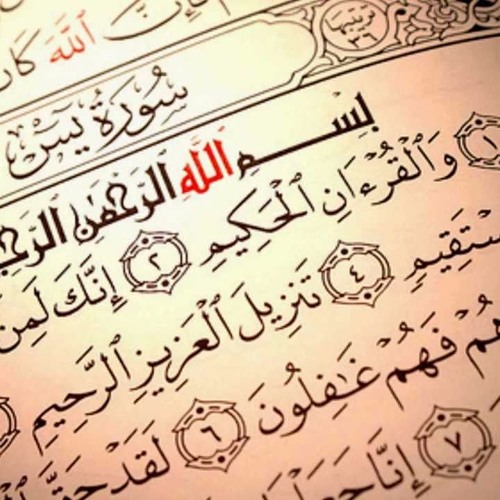 فَإِنَّ ٱللَّهَ كَانَ
ترتيبها ٣٦
سُورَةُ يسٓ
بِسْمِ ٱللَّهِ ٱلرَّحْمَٰنِ ٱلرَّحِ
١ وَٱلْقُرْءَانِ ٱلْحَكِيمِ ٢ إِنَّكَ لَمِنَ
سْتَقِيمٍ ٤ تَنزِيلَ ٱلْعَزِيزِ ٱلرَّحِيمِ
هُمْ فَهُمْ غَٰفِلُونَ ٦ لَقَدْ حَقَّ
٧ إِنَّا جَعَلْنَا